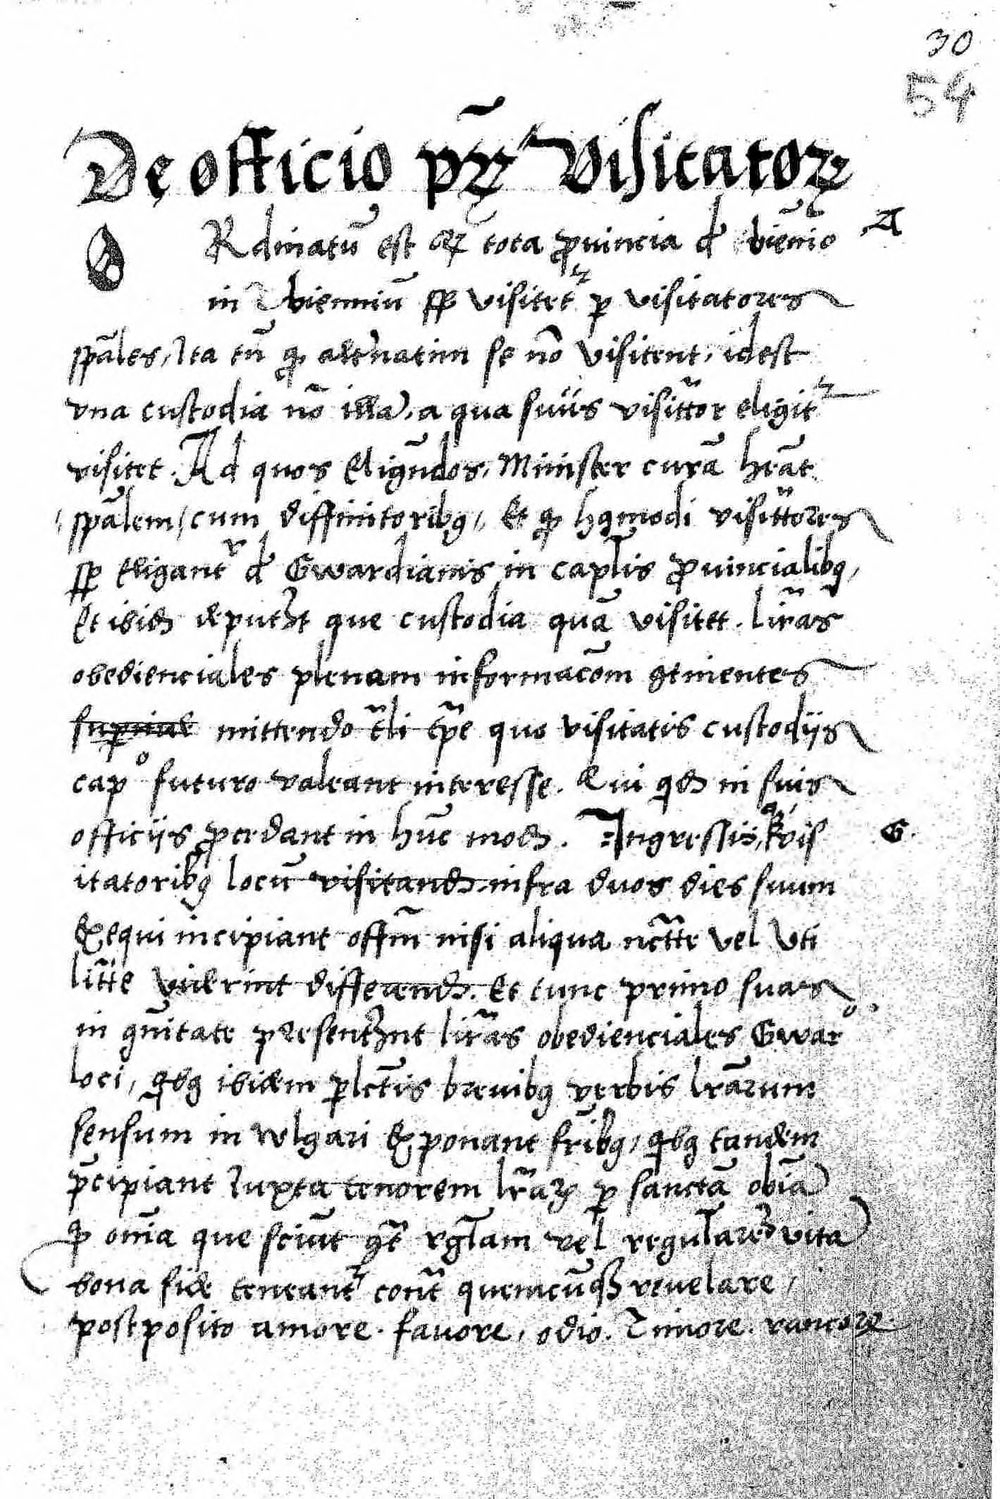 30
54
De officio pr̃ꝝ Visitatoꝝ
ORdinatũ est qꝫ tota ꝓuincia đ bieñio A
in biennium visitetᷣ ꝑ visitatores
spãles, Ita tñ ꝙ alt'natim se nõ visitent, idest
vna custodia nõ illa, a qua suus visit̃tor eligitᷣ
visitet. Ad quos eligẽdos, Minister curã hẽat
spãlem, cum diffinitoribꝫ, Et ꝙ hꝰmodi visit̃tores
eliganꞇᷣ đ Gwardianis in cap̃lis ꝓuincialibꝫ,
Et ibid̃ deputẽt que custodia quã visitet. lr̃as
obedienciales plenam informacõm ꝯtinentes
mittendo t̃li tp̃e quo visitatis custodijs
capᵒ futuro valeant interesse. Qui qd̃ in suis
officijs ꝓcedant in hũc mod̃. Ingressis vis G.
itatoribꝫ locũ visitand̃, infra duos dies suum
Exequi incipiant offm̃ nisi aliqua nc̃tte vel vti
lit̃te viderint differend̃. Et tunc primo suas
in ꝯ̃itate presentẽt lr̃as obedienciales Gwarᵒ
loci, qbꝫ ibidem ꝑlc̃tis breuibꝫ verbis lr̃arum
sensum in wlgari Exponant fr̃ibꝫ, qbꝫ tandem
p̃cipiant Iuxta tenorem lr̃aꝝ ꝑ sanctã obiã
ꝙ om̃ia que sciũt ꝯt̃ rgl̃am vel regularẽ vitã
bona fide teneantᷣ cont̃ quemcũqꝫ reuelare,
postposito amore. fauore, odio. Timore. rancore